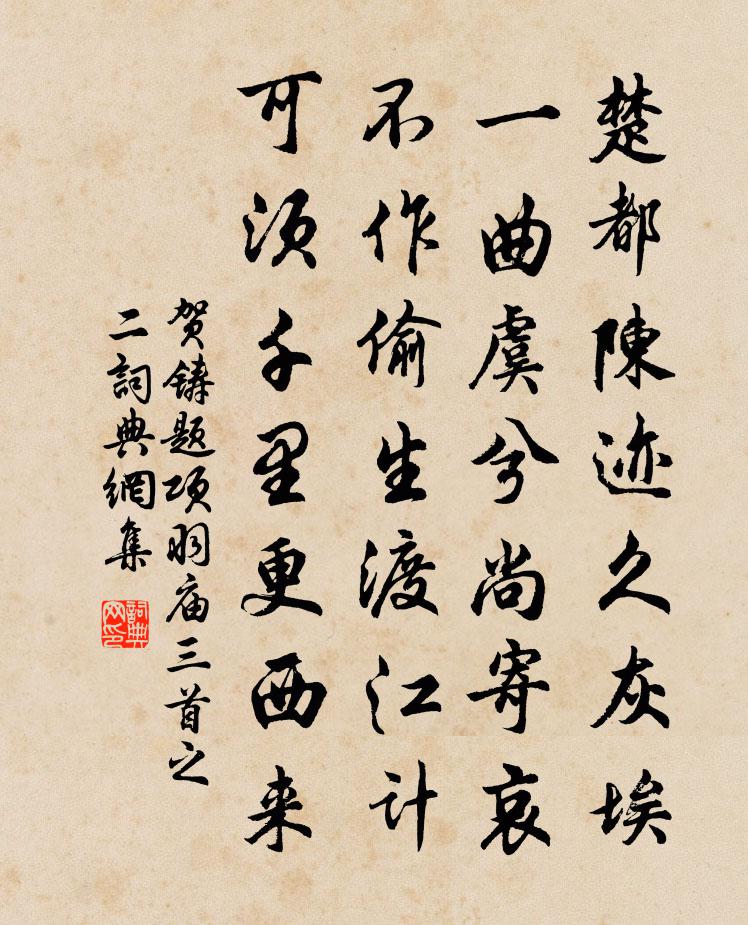 楚都陳迹久灰埃
一曲虞兮尚寄哀
不作偷生渡江计
可须千里更西来
贺铸题项羽庙三首之
二詞典網集
詞典网印